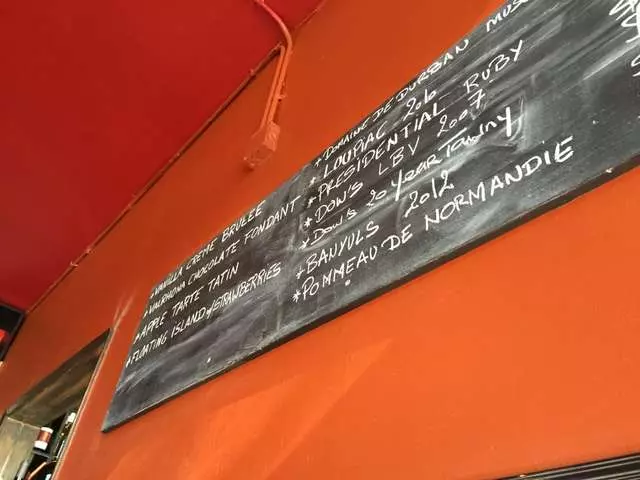 *VANILLA CRÈME BRULEE
*VALRHONA CHOCOLATE FONDANT
*APPLE TARTE TATIN
*FLOATING ISLAND w/STRAWBERRIES
*DOMAINE DE DURBAN
*LOUPIAC 2016
*PRESIDENTIAL RUBY
*DOW'S LBV 2007
*Dow's 20 year Tawny
*BANYULS 2012
*POMMEAU DE NORMANDIE